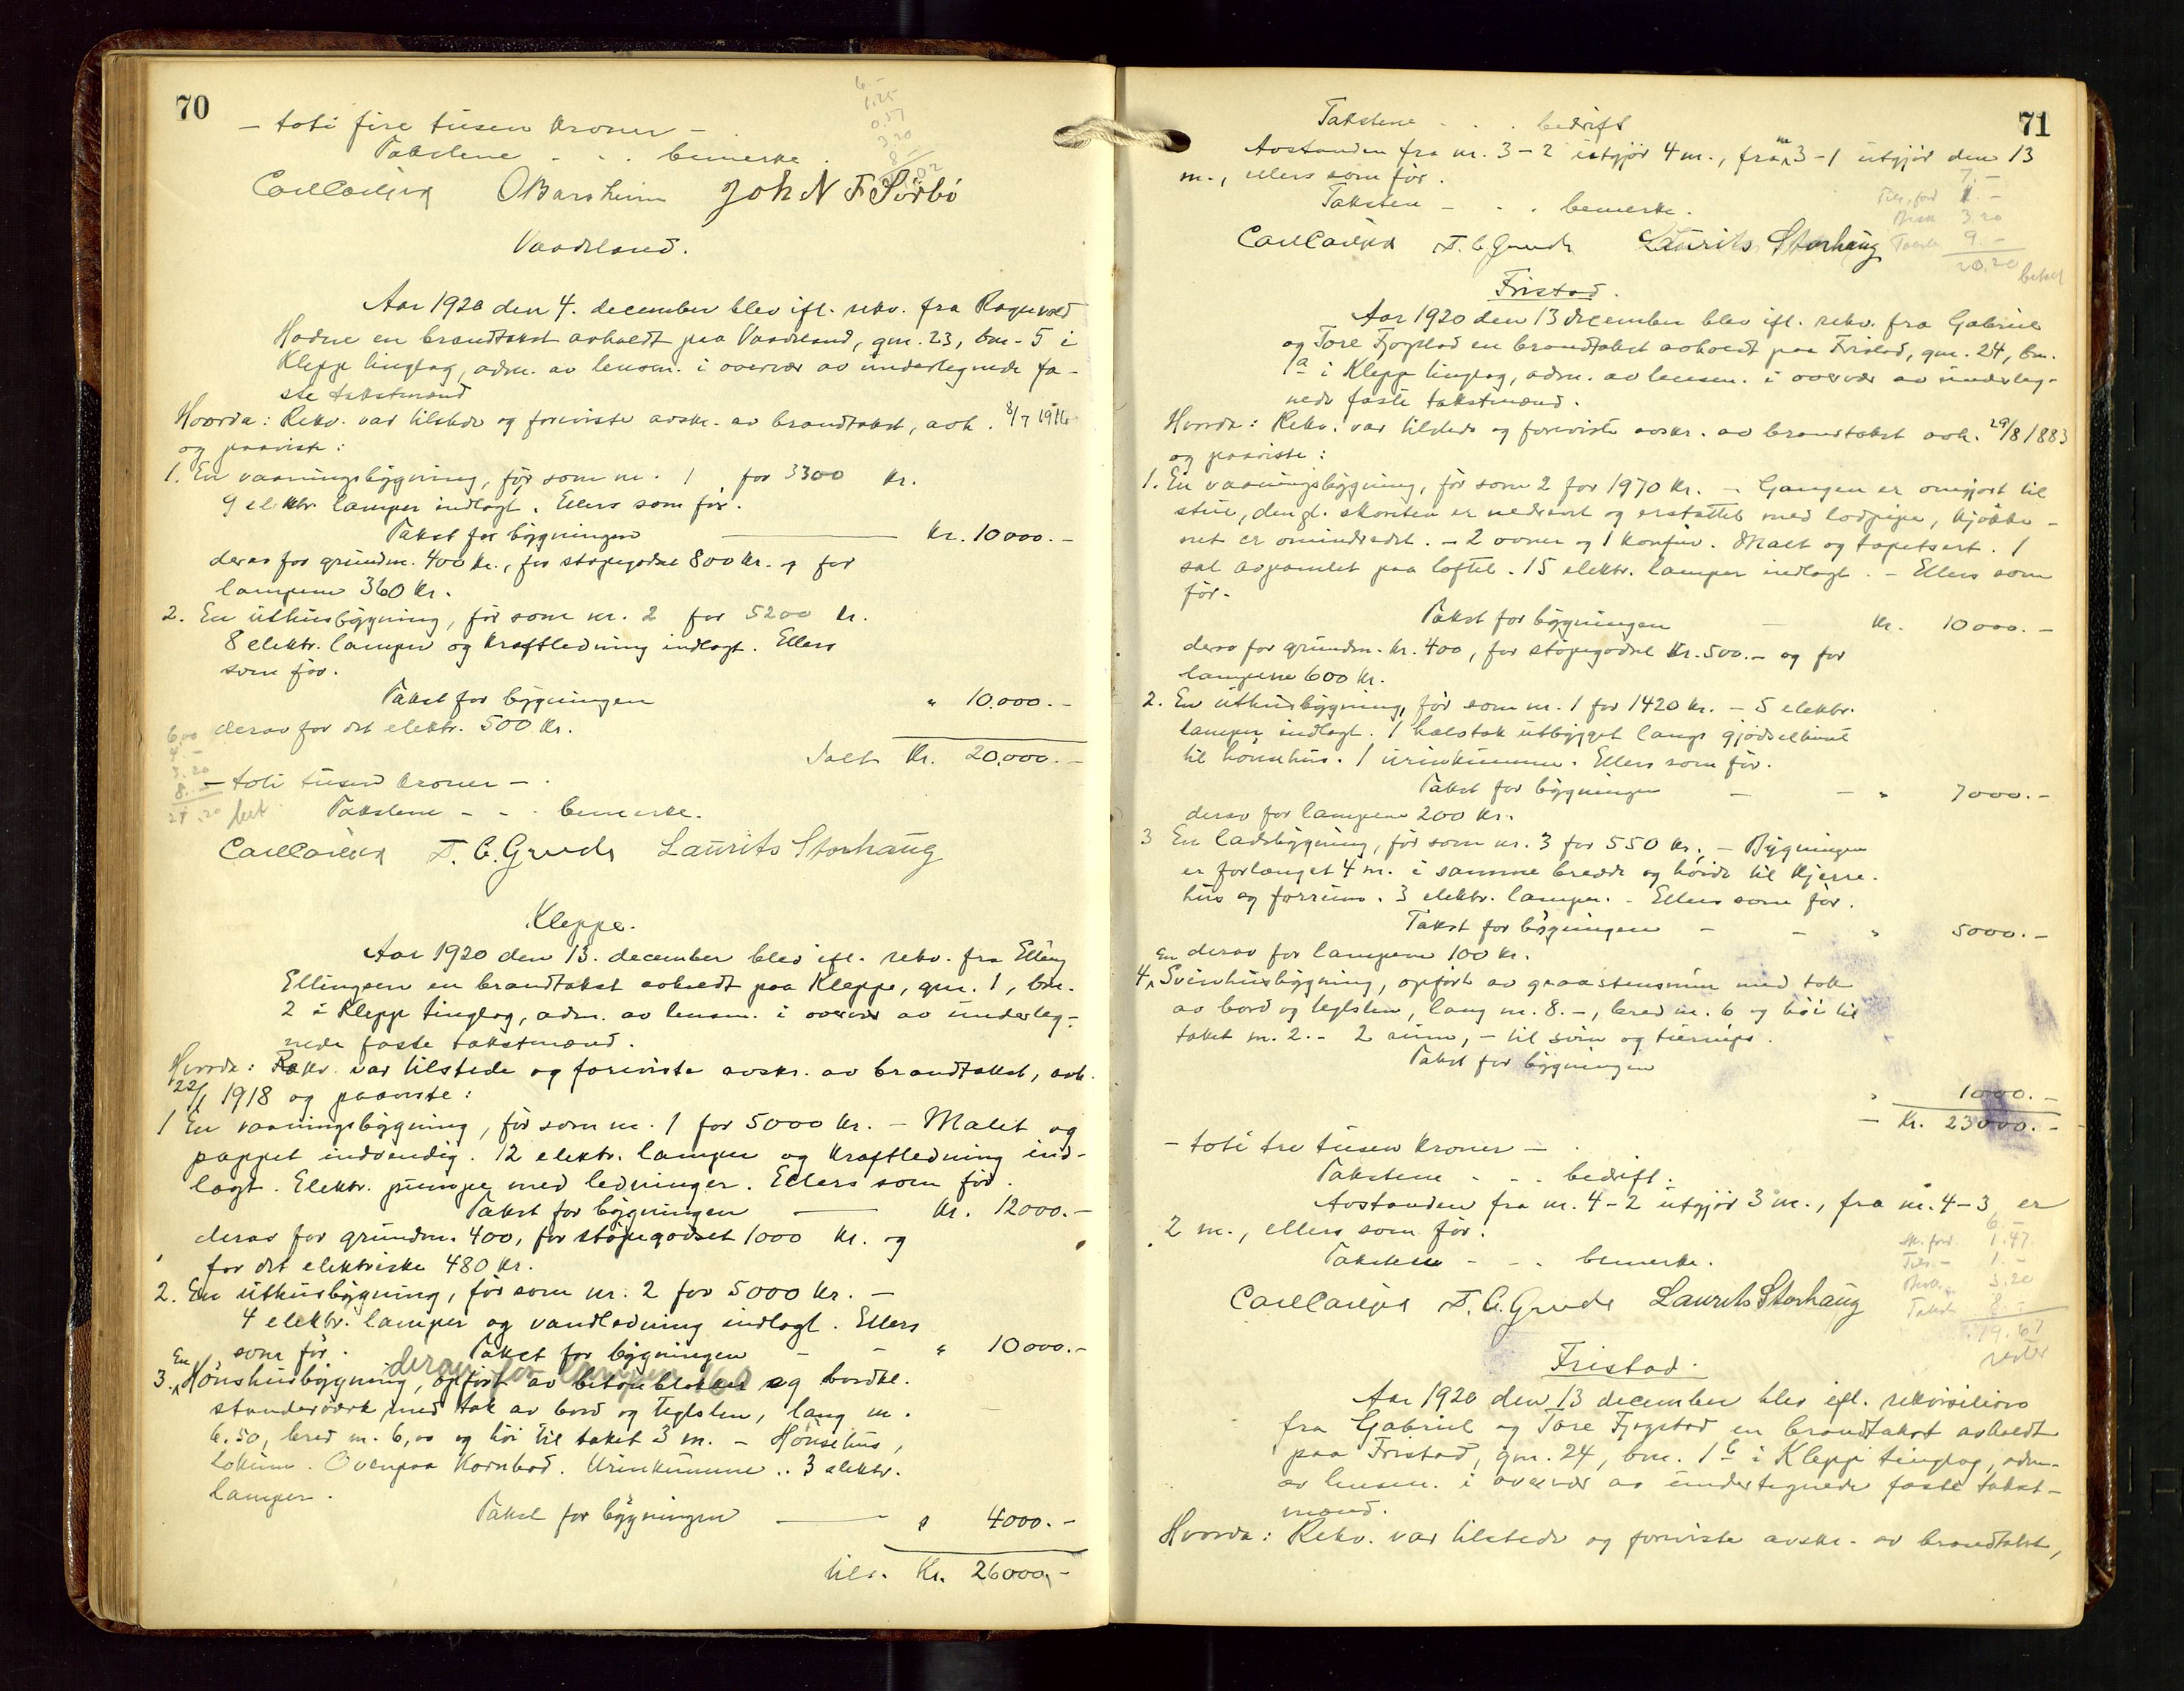 70
6.-
1.25
0.57
3.20
8.-
- toti fire tusen kroner -
Takstene - . . bemerke.
O Barsheim JohN F Sörbö
Vaadeland.
Aar 1920 den 4. december blev ifl. rekv. fra Ragnvald
Hodne en brandtakst avholdt paa Vaadland, gnr. 23, bnr. 5 i
Klepp tinglag, adm. av lensm. i overvær av undertegnede fa-
ste takstmænd
Hvorda: Rekv. var tilstede og foreviste avskr. av brandtakst, avh. 8/7 1916
og paaviste:
1. En vaaningsbygning, før som nr. 1 for 3300 kr.
9 elektr. lamper indlagt. Ellers som før.
Takst for bygningen Kr. 10000.-
derav for grundm. 400 kr., for støpegodset 800 kr. og for
lampene 360 Kr.
2. En uthusbygning, før som nr. 2 for 5200 kr.
8 elektr. lamper og kraftledning indlagt. Ellers
som før.
Takst for bygningen " 10.000.-
derav for det elektr. 500 Kr.
Ialt Kr. 20.000.-
6,00
4.-
3.20
8.-
21.20 bet
- toti tusen kroner - .
Takstene - - . bemerke.
T. C. Grude Laurits Storhaug
Kleppe.
Aar 1920 den 13. december blev ifl. rekv. fra Elling
Ellingsen en brandtakst avholdt paa Kleppe, gnr. 1, bnr.
2 i Klepp tinglag, adm. av lensm. i overvær av underteg-
nede faste takstmænd.
Hvorda: Rekv. var tilstede og foreviste avskr. av brandtakst, avh.
22/1 1918 og paaviste:
1 En vaaningsbygning, før som nr. 1 for 5000 Kr. - Malet og
pappet indvendig. 12 elektr. lamper og kraftledning ind-
lagt. Elektr. pumpe med ledninger. Ellers som før.
Takst for bygningen Kr. 12000.-
derav for grundm. 400, for støpegodset 1000 Kr. og
for det elektriske 480 Kr.
2. En uthusbygning, før som nr. 2 for 5000 Kr. -
4 elektr. lamper og vandledning indlagt. Ellers
som før. Takst for bygningen - - " 10000.-
derav for lampene 160
3. En Hønshusbygning, opført av betonblokker og bordkl.
standerværk med tak av bord og teglsten, lang m.
6.50, bred m. 6,00 og høi til taket 3 m. - Hønsehus,
lokum. Ovenpaa kornbod. Urinkumme.. 3 elektr.
lamper.
Takst for bygningen " 4000.-
tils. Kr. 26000,-
71
Takstene - . . bedrift
Avstanden fra nr. 3-2 utgjør 4 m., fra nr 3-1 utgjør den 13
m., ellers som før.
Taksten - - . bemerke.
7.-
Tils, ford 1.-
Besk 3.20
Takst 9.-
20.20 betalt
T. C. Grude Laurits Storhaug
Fristad.
Aar 1920 den 13 december blev ifl. rekv. fra Gabriel
og Tore Fjogstad en brandtakst avholdt paa Fristad, gnr. 24, bnr.
1a i Klepp tinglag, adm. av lensm. i overvær av underteg-
nede faste takstmænd.
Hvorda: Rekv. var tilstede og foreviste avskr. av brandtakst avh. 29/8 1883
og paaviste:
1. En vaaningsbygning, før som 2 for 1970 Kr. - Gangen er omgjort til
stue, den gl. skorsten er nedrevet og erstattet med lodpipe, kjøkke-
net er omindredet. - 2 ovner og 1 komfur. Malt og tapetsert. 1
sal avpanelet paa loftet. 15 elektr. lamper indlagt. - Ellers som
før.
Takst for bygningen - Kr. 10000.-
derav for grundm. Kr. 400, for støpegodset Kr. 500.- og for
lampene 600 Kr.
2. En uthusbygning, før som nr. 1 for 1420 Kr. - 5 elektr.
lamper indlagt. 1 halvtak utbygget langs gjødselhuset
til hønsehus. 1 urinkumme. Ellers som før.
Takst for bygningen - - " 7000.-
derav for lampene 200 Kr.
3 En ladebygning, før som nr. 3 for 550 Kr. - Bygningen
er forlænget 4 m. i samme bredde og høide til kjerre-
hus og forrum. 3 elektr. lamper. - Ellers som før.
Takst for bygningen - - " 5000.-
derav for lampene 100 kr.
4. En Svinhusbygning, opført av graastensmur med tak
av bord og teglsten, lang m. 8.-, bred m. 6 og høi til
taket m. 2.- 2 rum, - til svin og turnips.
Takst for bygningen
" 1000.-
- Kr. 23000.-
- toti tre tusen kroner -
Takstene - - . bedrift.
Avstanden fra nr. 4-2 utgjør 3 m., fra nr. 4-3 er
2 m., ellers som før.
Takstene - - . bemerke.
6.-
1.47
Tils - 1.-
Besk. 3.20
Takst 8.-
19.67
T. C. Grude Laurits Storhaug
Fristad.
Aar 1920 den 13 december blev ifl. rekvisition
fra Gabriel og Tore Fjogstad en brandtakst avholdt
paa Fristad, gnr. 24, bnr. 1b i Klepp tinglag, adm.
av lensm. i overvær av undertegnede faste takst-
mænd.
Hvorda: Rekv. var tilstede og foreviste avskr. av brandtakst,